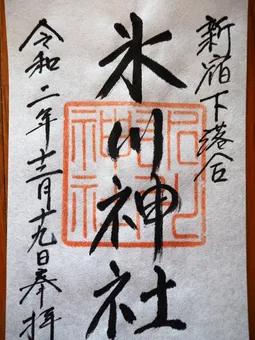 新宿下落合
氷川神社
令和二年十二月十九日奉拝